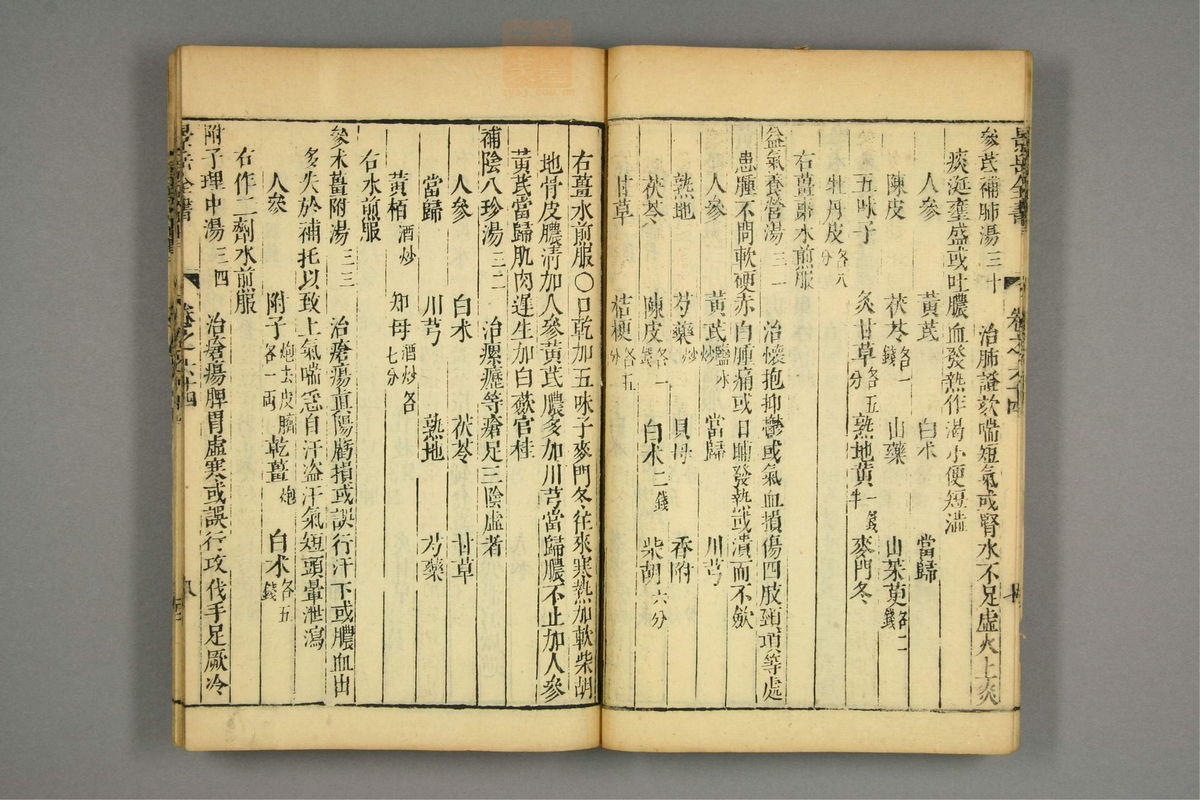 景岳全書
卷之六十四
參芪補肺湯三十　治肺證欬喘短氣或腎水不足虛火上炎
痰涎壅盛或吐膿血發熱作渴小便短澁
人參　黃芪　白朮　當歸
陳皮　茯苓各一錢　山藥　山茱萸各二錢
五味子　炙甘草各五分　熟地黃一錢半　麥門冬
牡丹皮各八分
右薑棗水煎服
益氣養營湯三一　治懷抱抑鬱或氣血損傷四肢頸項等處
患腫不問軟硬赤白腫痛或日晡發熱或潰而不歛
人參　黃芪鹽水炒　當歸　川芎
熟地　芍藥炒　貝母　香附
茯苓　陳皮各一錢　白朮二錢　柴胡六分
甘草　桔梗各五分
右薑水煎服〇口乾加五味子麥門冬往來寒熱加軟柴胡
地骨皮膿清加人參黃芪膿多加川芎當歸膿不止加人參
黃芪當歸肌肉遲生加白蘞官桂
補陰八珍湯三二　治瘰癧等瘡足三陰虛者
人參　白朮　茯苓　甘草
當歸　川芎　熟地　芍藥
黃栢酒炒　知母酒炒各七分
右水煎服
參朮薑附湯三三　治瘡瘍眞陽虧損或誤行汗下或膿血出
多失於補托以致上氣喘急自汗盜汗氣短頭暈泄瀉
人參　附子炮去皮臍各一兩　乾薑炮　白朮各五錢
右作二劑水煎服
附子理中湯三四　治瘡瘍脾胃虛寒或誤行攻伐手足厥冷
景岳全書
卷之六十四